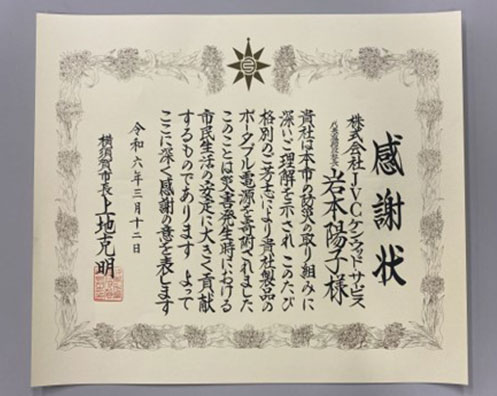 感謝状
株式会社JVCケンウッド・サービス
代表取締役社長 岩本陽子様
貴社は本市の防災の取り組みに
深いご理解を示され このたび
格別のご芳志により貴社製品の
ポータブル電源を寄附されました
このことは災害発生時における
市民生活の安定に大きく貢献
するものであります よって
ここに深く感謝の意を表します
令和六年三月十二日
横須賀市長 上地克明